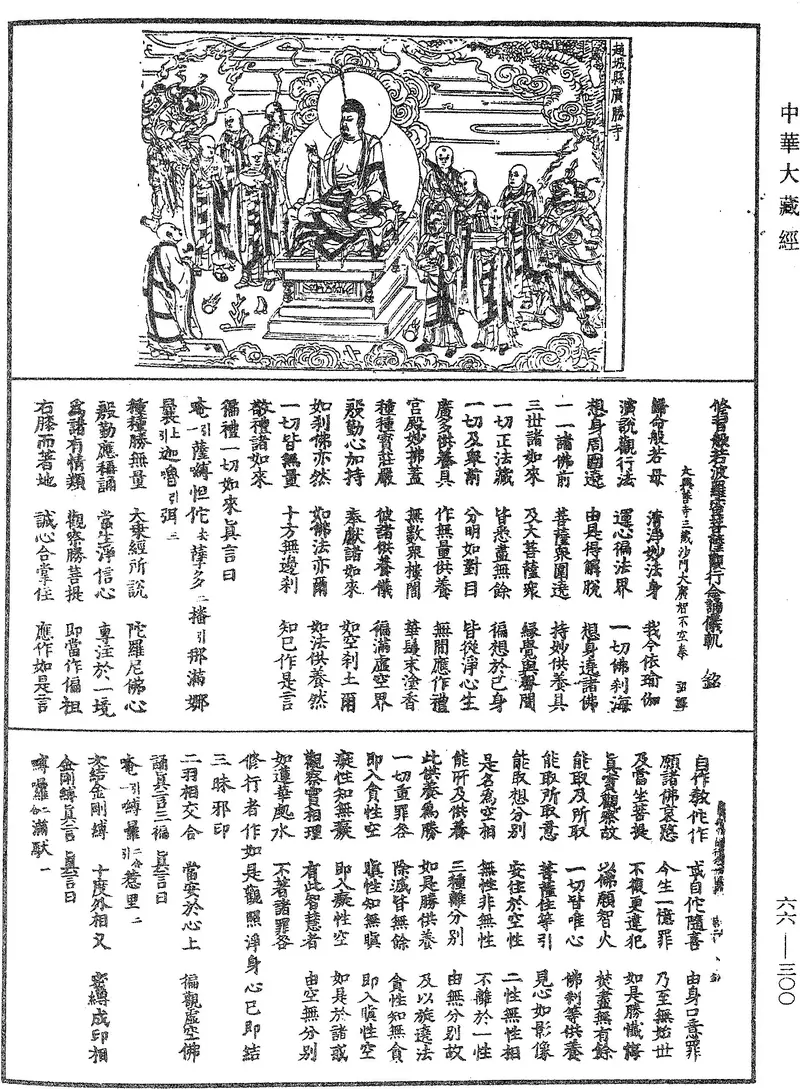 中華大藏經
趙城縣廣勝寺
修習般若波羅蜜菩薩觀行念誦儀軌 銘
大興善寺三藏沙門大廣智不空奉 詔譯
歸命般若母 清淨妙法身 我今依瑜伽
演說觀行法 運心徧法界 一切佛剎海
想身周圍遶 由是得解脫 想身遶諸佛
一一諸佛前 菩薩衆圍遶 持妙供養具
三世諸如來 及大菩薩衆 緣覺與聲聞
一切正法藏 皆悉盡無餘 徧想於己身
一切及舉前 分明如對目 皆從淨心生
廣多供養具 作無量供養 無間應作禮
宮殿妙拂蓋 無數衆樓閣 華鬘末塗香
種種寳莊嚴 彼諸供養儀 徧滿虛空界
殷勤心加持 奉獻諸如來 如空剎土爾
如剎佛亦然 如佛法亦爾 如法供養然
一切皆無量 十方無邊剎 知已作是言
敬禮諸如來
徧禮一切如來真言曰
唵一引薩嚩怛佗二薩多二播引那滿娜
曩上迦嚕引弭三
種種勝無量 大乘經所說 陀羅尼佛心
殷勤應稱誦 當生淨信心 專注於一境
爲諸有情類 觀察勝菩提 即當作偏袒
右膝而著地 誠心合掌住 應作如是言
自作教佗作 或自佗隨喜 由身口意罪
願諸佛哀愍 今生一憶罪 乃至無始世
及當坐菩提 不復更違犯 如是勝懺悔
真實觀察故 以佛願智火 焚盡無有餘
能取及所取 一切皆唯心 佛剎等供養
能取所取意 菩薩住等引 見心如影像
能取想分別 安住於空性 二性無性相
是名爲空相 無性非無性 不離於一性
能所及供養 三種離分別 由無分別故
此供養爲勝 如是勝供養 及以旋遶法
一切重罪咎 除滅皆無餘 貪性知無貪
即入貪性空 瞋性知無瞋 即入瞋性空
癡性知無癡 即入癡性空 如是於諸惑
觀察實相理 有此智慧者 由空無分別
如蓮華處水 不著諸罪咎
修行者作如是觀照淨身心已即結
三昧邪印
二羽相交合 當安於心上 徧觀虛空佛
誦真言三徧 真言曰
唵一引嚩日囉二合引惹里二
次結金剛縛 十度外相叉 密縛成印相
金剛縛真言 真言曰
嚩日囉二合滿馱一
六六—三〇〇